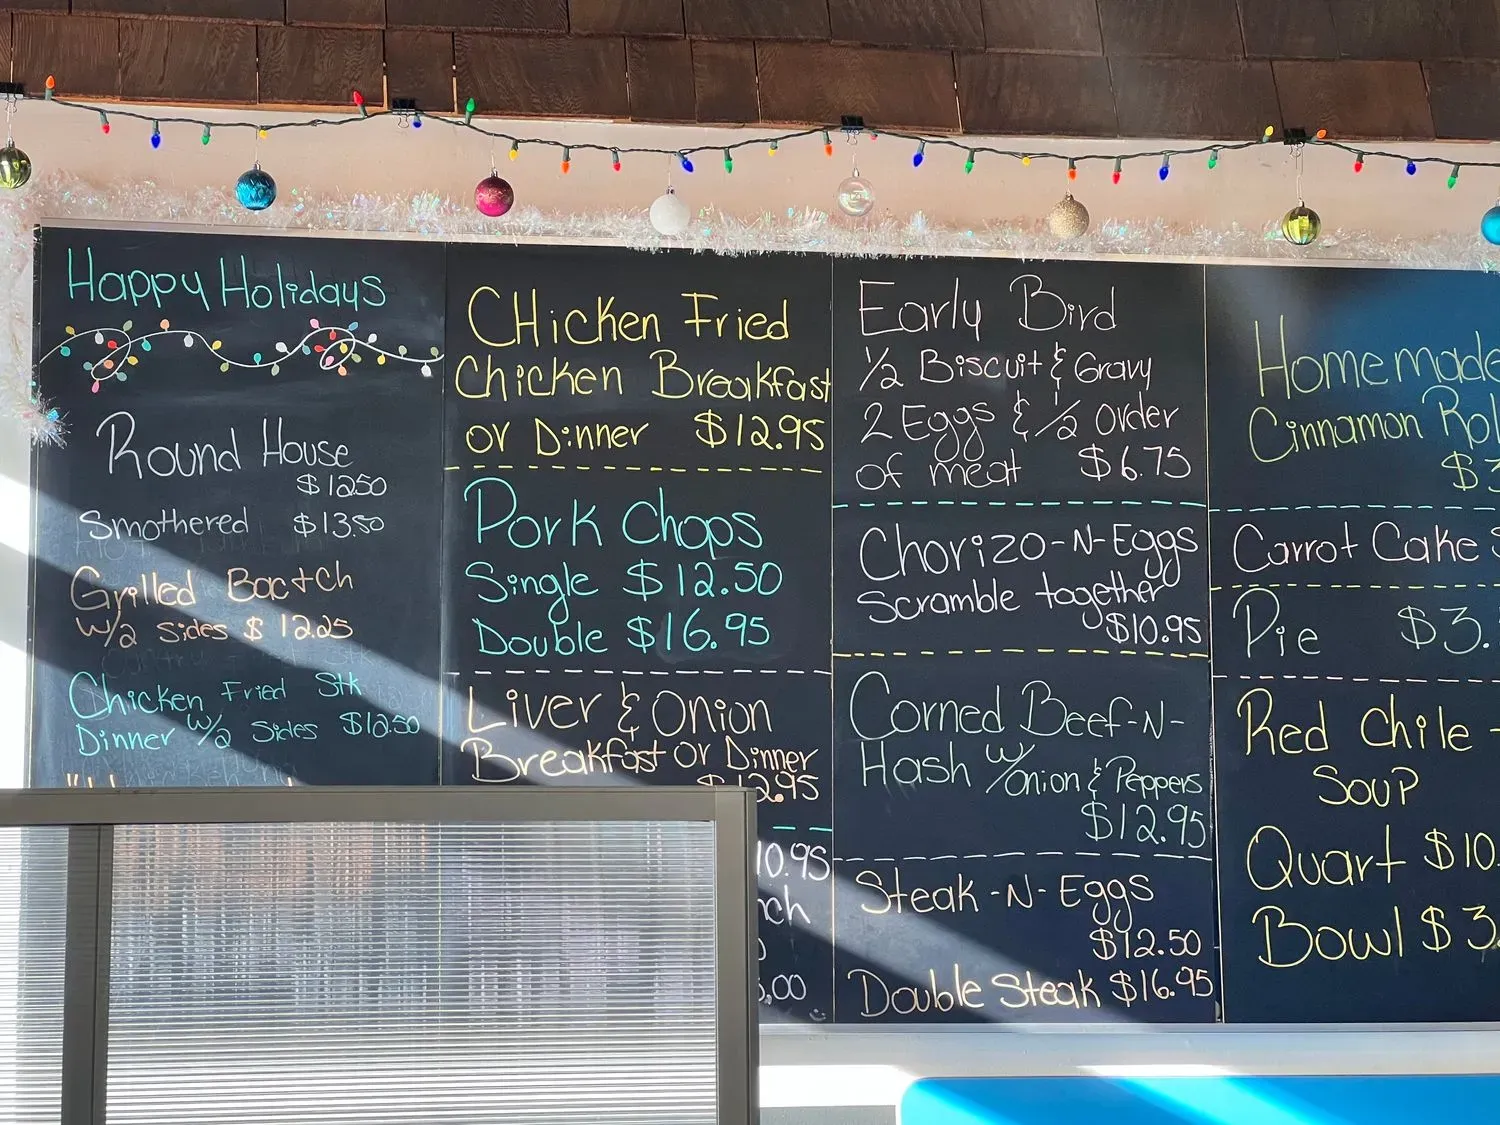 Happy Holidays
Round House
$12.50
Smothered $13.50
Grilled Bactch
w/2 Sides $12.25
Chicken Fried Stk
Dinner w/2 Sides $12.50
CHicken Fried
Chicken Breakfast
or Dinner $12.95
Pork Chops
Single $12.50
Double $16.95
Liver & Onion
Breakfast or Dinner
$12.95
10.95
Early Bird
1/2 Biscuit & Gravy
2 Eggs & 1/2 order
of meat $6.75
Chorizo-N-Eggs
Scramble together
$10.95
Corned Beef-N-
Hash w/onion & Peppers
$12.95
Steak-N-Eggs
$12.50
Double Steak $16.95
Homemade
Cinnamon Rol
$3
Carrot Cake
Pie $3.
Red Chile -
Soup
Quart $10.
Bowl $3